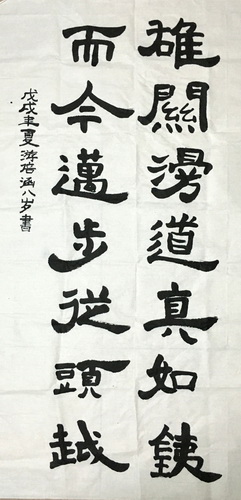 雄關漫道真如銕
而今邁步從頭越
戊戌年夏游培涵八岁書